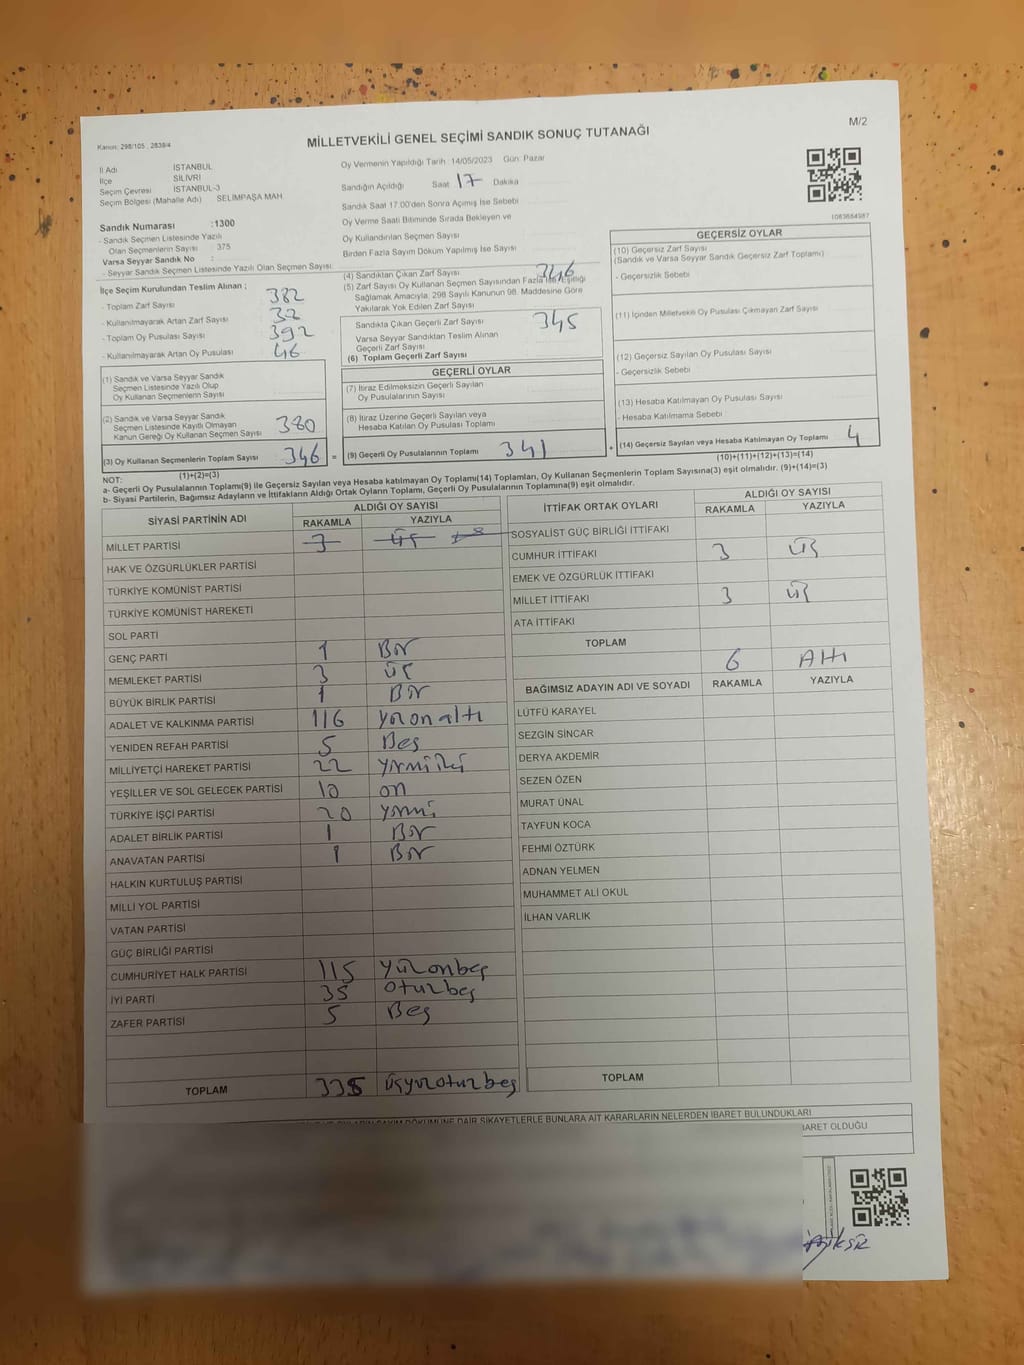 M/2
Kanun: 298/105 , 2839/4
MİLLETVEKİLİ GENEL SEÇİMİ SANDIK SONUÇ TUTANAĞI
İl Adı İSTANBUL
İlçe SİLİVRİ
Seçim Çevresi İSTANBUL-3
Seçim Bölgesi (Mahalle Adı) SELİMPAŞA MAH.
Oy Vermenin Yapıldığı Tarih :14/05/2023 Gün: Pazar
Sandığın Açıldığı Saat 17 Dakika
Sandık Saat 17:00'den Sonra Açılmış İse Sebebi
Oy Verme Saati Bitiminde Sırada Bekleyen ve
Oy Kullandırılan Seçmen Sayısı
Birden Fazla Sayım Döküm Yapılmış İse Sayısı
Sandık Numarası :1300
- Sandık Seçmen Listesinde Yazılı
Olan Seçmenlerin Sayısı 375
Varsa Seyyar Sandık No :
- Seyyar Sandık Seçmen Listesinde Yazılı Olan Seçmen Sayısı:
İlçe Seçim Kurulundan Teslim Alınan ;
- Toplam Zarf Sayısı 382
- Kullanılmayarak Artan Zarf Sayısı 32
- Toplam Oy Pusulası Sayısı 392
- Kullanılmayarak Artan Oy Pusulası 46
(1) Sandık ve Varsa Seyyar Sandık
Seçmen Listesinde Yazılı Olup
Oy Kullanan Seçmen Sayısı
(2) Sandık ve Varsa Seyyar Sandık
Seçmen Listesinde Kayıtlı Olmayan
Kanun Gereği Oy Kullanan Seçmen Sayısı 380
(3) Oy Kullanan Seçmenlerin Toplam Sayısı 346 =
(1)+(2)=(3)
(4) Sandıktan Çıkan Zarf Sayısı 346
(5) Zarf Sayısı Oy Kullanan Seçmen Sayısından Fazla İse, Eşitliği
Sağlamak Amacıyla, 298 Sayılı Kanunun 98. Maddesine Göre
Yakılarak Yok Edilen Zarf Sayısı
Sandıkta Çıkan Geçerli Zarf Sayısı 345
Varsa Seyyar Sandıktan Teslim Alınan
Geçerli Zarf Sayısı
(6) Toplam Geçerli Zarf Sayısı
GEÇERLİ OYLAR
(7) İtiraz Edilmeksizin Geçerli Sayılan
Oy Pusulalarının Sayısı
(8) İtiraz Üzerine Geçerli Sayılan veya
Hesaba Katılan Oy Pusulası Toplamı
(9) Geçerli Oy Pusulalarının Toplamı 341 +
1083684987
GEÇERSİZ OYLAR
(10) Geçersiz Zarf Sayısı
(Sandık ve Varsa Seyyar Sandık Geçersiz Zarf Toplamı)
- Geçersizlik Sebebi
(11) İçinden Milletvekili Oy Pusulası Çıkmayan Zarf Sayısı
(12) Geçersiz Sayılan Oy Pusulası Sayısı
- Geçersizlik Sebebi
(13) Hesaba Katılmayan Oy Pusulası Sayısı
- Hesaba Katılmama Sebebi
(14) Geçersiz Sayılan veya Hesaba Katılmayan Oy Toplamı 4
(10)+(11)+(12)+(13)=(14)
NOT:
a- Geçerli Oy Pusulalarının Toplamı(9) ile Geçersiz Sayılan veya Hesaba katılmayan Oy Toplamı(14) Toplamları, Oy Kullanan Seçmenlerin Toplam Sayısına(3) eşit olmalıdır. (9)+(14)=(3)
b- Siyasi Partilerin, Bağımsız Adayların ve İttifakların Aldığı Ortak Oyların Toplamı, Geçerli Oy Pusulalarının Toplamına(9) eşit olmalıdır.
SİYASİ PARTİNİN ADI ALDIĞI OY SAYISI
RAKAMLA YAZIYLA
MİLLET PARTİSİ 3 üç
HAK VE ÖZGÜRLÜKLER PARTİSİ
TÜRKİYE KOMÜNİST PARTİSİ
TÜRKİYE KOMÜNİST HAREKETİ
SOL PARTİ
GENÇ PARTİ 1 Bir
MEMLEKET PARTİSİ 3 üç
BÜYÜK BİRLİK PARTİSİ 1 Bir
ADALET VE KALKINMA PARTİSİ 116 yüzonaltı
YENİDEN REFAH PARTİSİ 5 Beş
MİLLİYETÇİ HAREKET PARTİSİ 22 yirmiiki
YEŞİLLER VE SOL GELECEK PARTİSİ 10 on
TÜRKİYE İŞÇİ PARTİSİ 20 yirmi
ADALET BİRLİK PARTİSİ 1 Bir
ANAVATAN PARTİSİ 1 Bir
HALKIN KURTULUŞ PARTİSİ
MİLLİ YOL PARTİSİ
VATAN PARTİSİ
GÜÇ BİRLİĞİ PARTİSİ
CUMHURİYET HALK PARTİSİ 115 yüzonbeş
İYİ PARTİ 35 otuzbeş
ZAFER PARTİSİ 5 Beş
TOPLAM 335 üçyüzotuzbeş
İTTİFAK ORTAK OYLARI ALDIĞI OY SAYISI
RAKAMLA YAZIYLA
SOSYALİST GÜÇ BİRLİĞİ İTTİFAKI
CUMHUR İTTİFAKI 3 üç
EMEK VE ÖZGÜRLÜK İTTİFAKI
MİLLET İTTİFAKI 3 üç
ATA İTTİFAKI
TOPLAM 6 Altı
BAĞIMSIZ ADAYIN ADI VE SOYADI RAKAMLA YAZIYLA
LÜTFÜ KARAYEL
SEZGİN SİNCAR
DERYA AKDEMİR
SEZEN ÖZEN
MURAT ÜNAL
TAYFUN KOCA
FEHMİ ÖZTÜRK
ADNAN YELMEN
MUHAMMET ALİ OKUL
İLHAN VARLIK
TOPLAM
DAİR ŞİKAYETLERLE BUNLARA AİT KARARLARIN NELERDEN İBARET BULUNDUKLARI
İBARET OLDUĞU